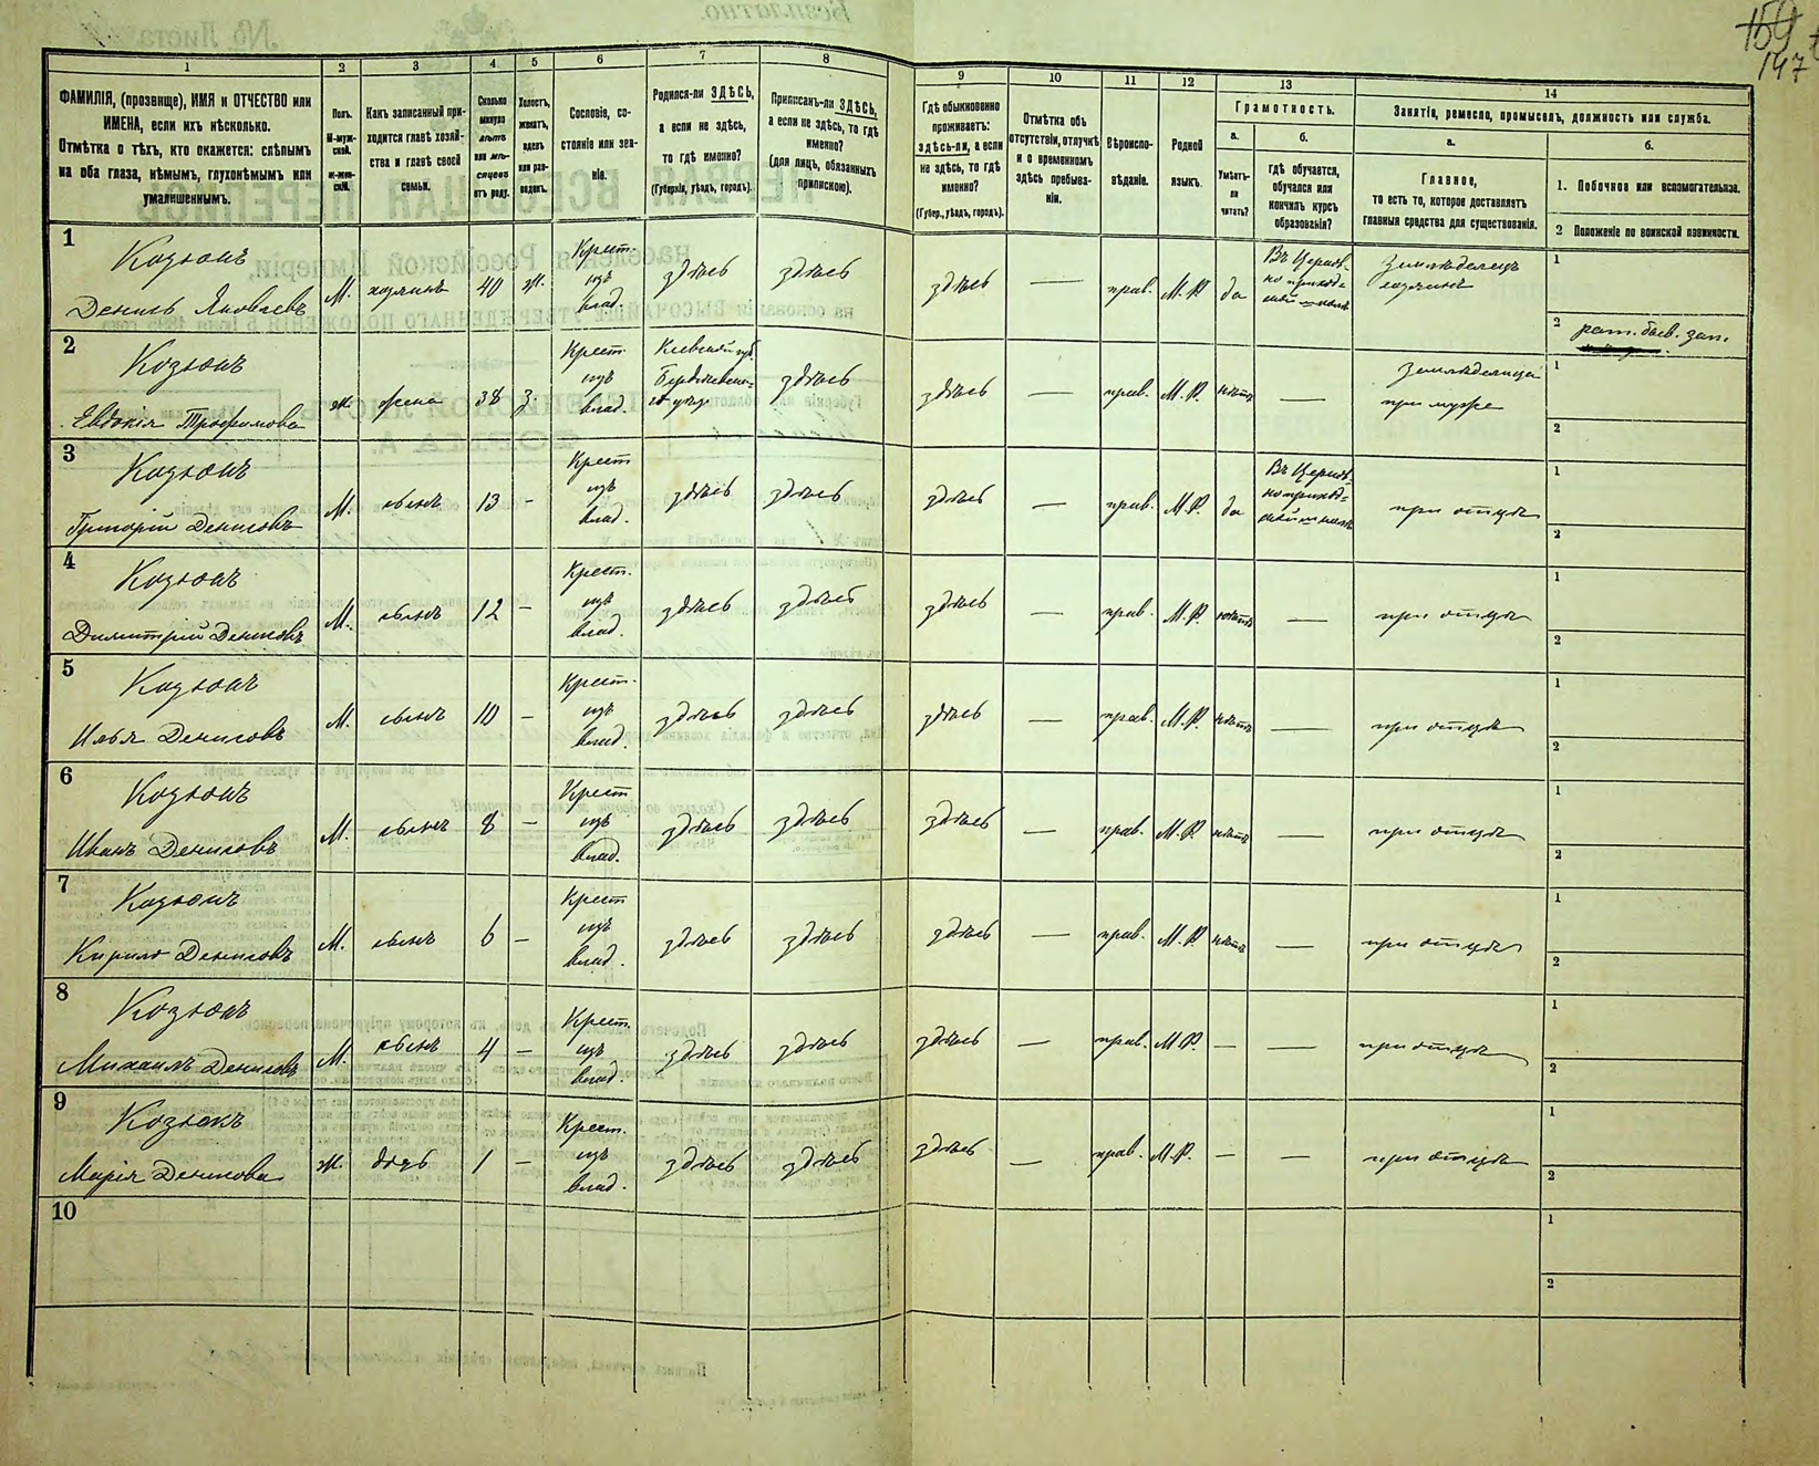 159
147
1
2
3
4
5
6
7
8
9
10
11
12
13
14
ФАМИЛІЯ, (прозвище), ИМЯ и ОТЧЕСТВО или
ИМЕНА, если ихъ нѣсколько.
Отмѣтка о тѣхъ, кто окажется: слѣпымъ
на оба глаза, нѣмымъ, глухонѣмымъ или
умалишеннымъ.
Полъ.
М-муж-
ской.
ж-жен-
скій.
Какъ записанный при-
ходится главѣ хозяй-
ства и главѣ своей
семьи.
Сколько
минуло
лѣтъ
или мѣ-
сяцевъ
отъ роду.
Холостъ,
женатъ,
вдовъ
или раз-
веденъ.
Сословіе, со-
стояніе или зва-
ніе.
Родился-ли ЗДѢСЬ,
а если не здѣсь,
то гдѣ именно?
(Губернія, уѣздъ, городъ).
Приписанъ-ли ЗДѢСЬ,
а если не здѣсь, то гдѣ
именно?
(для лицъ, обязанныхъ
припискою).
Гдѣ обыкновенно
проживаетъ:
здѣсь-ли, а если
не здѣсь, то гдѣ
именно?
(Губер., уѣздъ, городъ).
Отмѣтка объ
отсутствіи, отлучкѣ
и о временномъ
здѣсь пребыва-
ніи.
Вѣроиспо-
вѣданіе.
Родной
языкъ.
Грамотность.
а.
Умѣетъ-
ли
читать?
б.
гдѣ обучается,
обучался или
кончилъ курсъ
образованія?
Занятіе, ремесло, промыселъ, должность или служба.
а.
Главное,
то есть то, которое доставляетъ
главныя средства для существованія.
б.
1. Побочное или вспомогательное.
2 Положеніе по воинской повинности.
1
Козюкъ
Денисъ Яковлевъ
М. хозяинъ 40 ж.
Крест.
изъ
влад.
здѣсь здѣсь здѣсь — прав. М.Р. да
Въ Церков-
но приход-
ской школѣ
Земледѣлецъ
хозяинъ
1
2 рат. ... зап.
2
Козюкъ
Евдокія Трофимова
ж. жена 38 з.
Крест.
изъ
влад.
Кіевской губ.
Бердичевска-
го уѣзд.
здѣсь здѣсь — прав. М.Р. нѣтъ —
Земледѣлица
при мужѣ
1
2
3
Козюкъ
Григорій Денисовъ
М. сынъ 13 -
Крест
изъ
влад.
здѣсь здѣсь здѣсь — прав. М.Р. да
Въ Церков-
но приход-
ской школѣ
при отцѣ
1
2
4
Козюкъ
Димитрій Денисовъ
М. сынъ 12 —
Крест.
изъ
влад.
здѣсь здѣсь здѣсь — прав. М.Р. нѣтъ — при отцѣ
1
2
5
Козюкъ
Илья Денисовъ
М. сынъ 10 —
Крест.
изъ
влад.
здѣсь здѣсь здѣсь — прав. М.Р. нѣтъ — при отцѣ
1
2
6
Козюкъ
Иванъ Денисовъ
М. сынъ 8 —
Крест
изъ
влад.
здѣсь здѣсь здѣсь — прав. М.Р. нѣтъ — при отцѣ
1
2
7
Козюкъ
Кирило Денисовъ
М. сынъ 6 —
Крест
изъ
влад.
здѣсь здѣсь здѣсь — прав. М.Р. нѣтъ — при отцѣ
1
2
8
Козюкъ
Михаилъ Денисовъ
М. сынъ 4 —
Крест.
изъ
влад.
здѣсь здѣсь здѣсь — прав. М.Р. — — при отцѣ
1
2
9
Козюкъ
Марія Денисова
ж. дочь 1 —
Крест.
изъ
влад.
здѣсь здѣсь здѣсь — прав. М.Р. — — при отцѣ
1
2
10
1
2